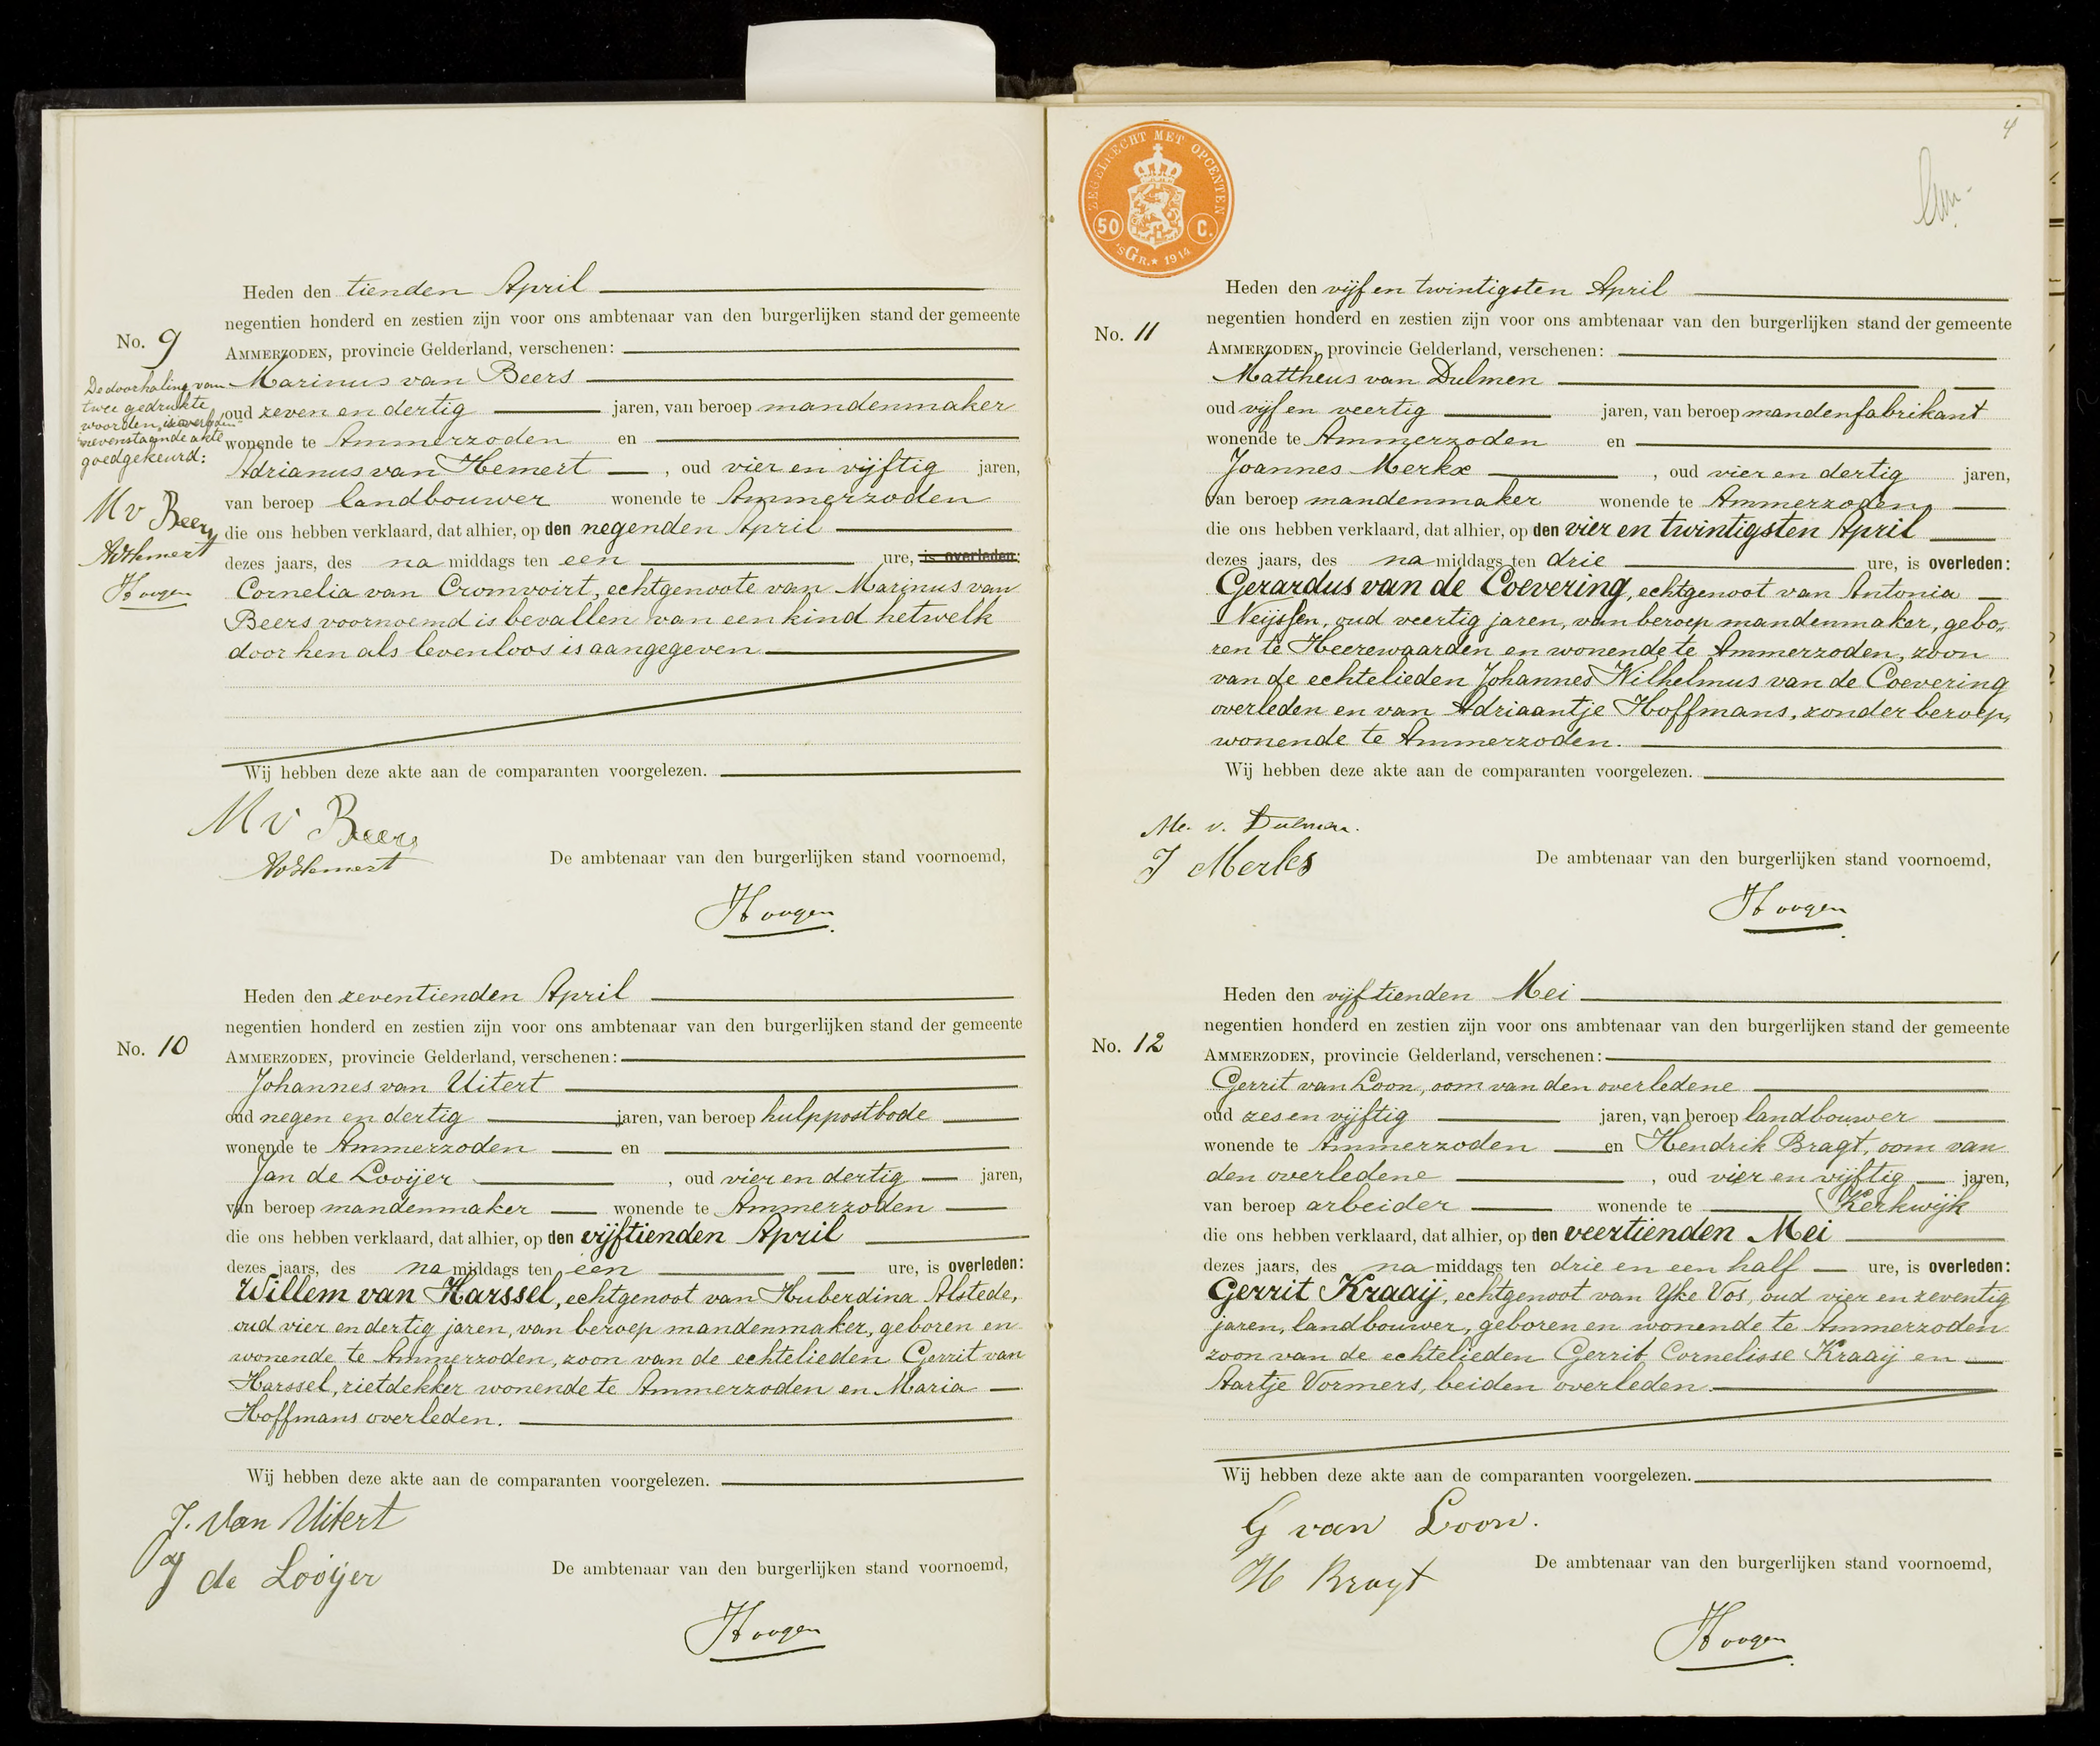 Heden den tienden April
No. 9
negentien honderd en zestien zijn voor ons ambtenaar van den burgerlijken stand der gemeente
AMMERZODEN, provincie Gelderland, verschenen:
Marinus van Beers
oud zeven en dertig jaren, van beroep mandenmaker
wonende te Ammerzoden en
Adrianus van Hemert, oud vier en vijftig jaren,
van beroep landbouwer wonende te Ammerzoden
die ons hebben verklaard, dat alhier, op den negenden April
dezes jaars, des na middags ten een ure, is overleden:
Cornelia van Cromvoirt, echtgenoote van Marinus van
Beers voornoemd is bevallen van een kind hetwelk
door hen als levenloos is aangegeven
Wij hebben deze akte aan de comparanten voorgelezen.
De doorhaling van
twee gedrukte
woorden "is overleden" in
nevenstaande akte
goedgekeurd:
M v Beers
AvHemert
Hoogen
M v Beers
AvHemert
De ambtenaar van den burgerlijken stand voornoemd,
Hoogen
Heden den zeventienden April
negentien honderd en zestien zijn voor ons ambtenaar van den burgerlijken stand der gemeente
No. 10
AMMERZODEN, provincie Gelderland, verschenen:
Johannes van Uitert
oud negen en dertig jaren, van beroep hulppostbode
wonende te Ammerzoden en
Jan de Looijer, oud vier en dertig jaren,
van beroep mandenmaker wonende te Ammerzoden
die ons hebben verklaard, dat alhier, op den vijftienden April
dezes jaars, des na middags ten een ure, is overleden:
Willem van Harssel, echtgenoot van Huberdina Alstede,
oud vier en dertig jaren, van beroep mandenmaker, geboren en
wonende te Ammerzoden, zoon van de echtelieden Gerrit van
Harssel, rietdekker wonende te Ammerzoden en Maria
Hoffmans overleden.
Wij hebben deze akte aan de comparanten voorgelezen.
J. van Uitert
J de Looijer
De ambtenaar van den burgerlijken stand voornoemd,
Hoogen
4
ZEGELRECHT MET OPCENTEN
50 C.
'sGR.★ 1914
Heden den vijf en twintigsten April
negentien honderd en zestien zijn voor ons ambtenaar van den burgerlijken stand der gemeente
No. 11
AMMERZODEN, provincie Gelderland, verschenen:
Mattheus van Dulmen
oud vijf en veertig jaren, van beroep mandenfabrikant
wonende te Ammerzoden en
Joannes Merkx, oud vier en dertig jaren,
van beroep mandenmaker wonende te Ammerzoden
die ons hebben verklaard, dat alhier, op den vier en twintigsten April
dezes jaars, des na middags ten drie ure, is overleden:
Gerardus van de Coevering, echtgenoot van Antonia
Neijssen, oud veertig jaren, van beroep mandenmaker, gebo„
ren te Heerewaarden en wonende te Ammerzoden, zoon
van de echtelieden Johannes Wilhelmus van de Coevering
overleden en van Adriaantje Hoffmans, zonder beroep,
wonende te Ammerzoden.
Wij hebben deze akte aan de comparanten voorgelezen.
M. v. Dulmen.
J Merks
De ambtenaar van den burgerlijken stand voornoemd,
Hoogen
Heden den vijftienden Mei
negentien honderd en zestien zijn voor ons ambtenaar van den burgerlijken stand der gemeente
No. 12
AMMERZODEN, provincie Gelderland, verschenen:
Gerrit van Loon, oom van den overledene
oud zes en vijftig jaren, van beroep landbouwer
wonende te Ammerzoden en Hendrik Bragt, oom van
den overledene, oud vier en vijftig jaren,
van beroep arbeider wonende te Kerkwijk
die ons hebben verklaard, dat alhier, op den veertienden Mei
dezes jaars, des na middags ten drie en een half ure, is overleden:
Gerrit Kraaij, echtgenoot van Yke Vos, oud vier en zeventig
jaren, landbouwer, geboren en wonende te Ammerzoden
zoon van de echtelieden Gerrit Cornelisse Kraaij en
Aartje Vormers, beiden overleden.
Wij hebben deze akte aan de comparanten voorgelezen.
G van Loon.
H Bragt
De ambtenaar van den burgerlijken stand voornoemd,
Hoogen